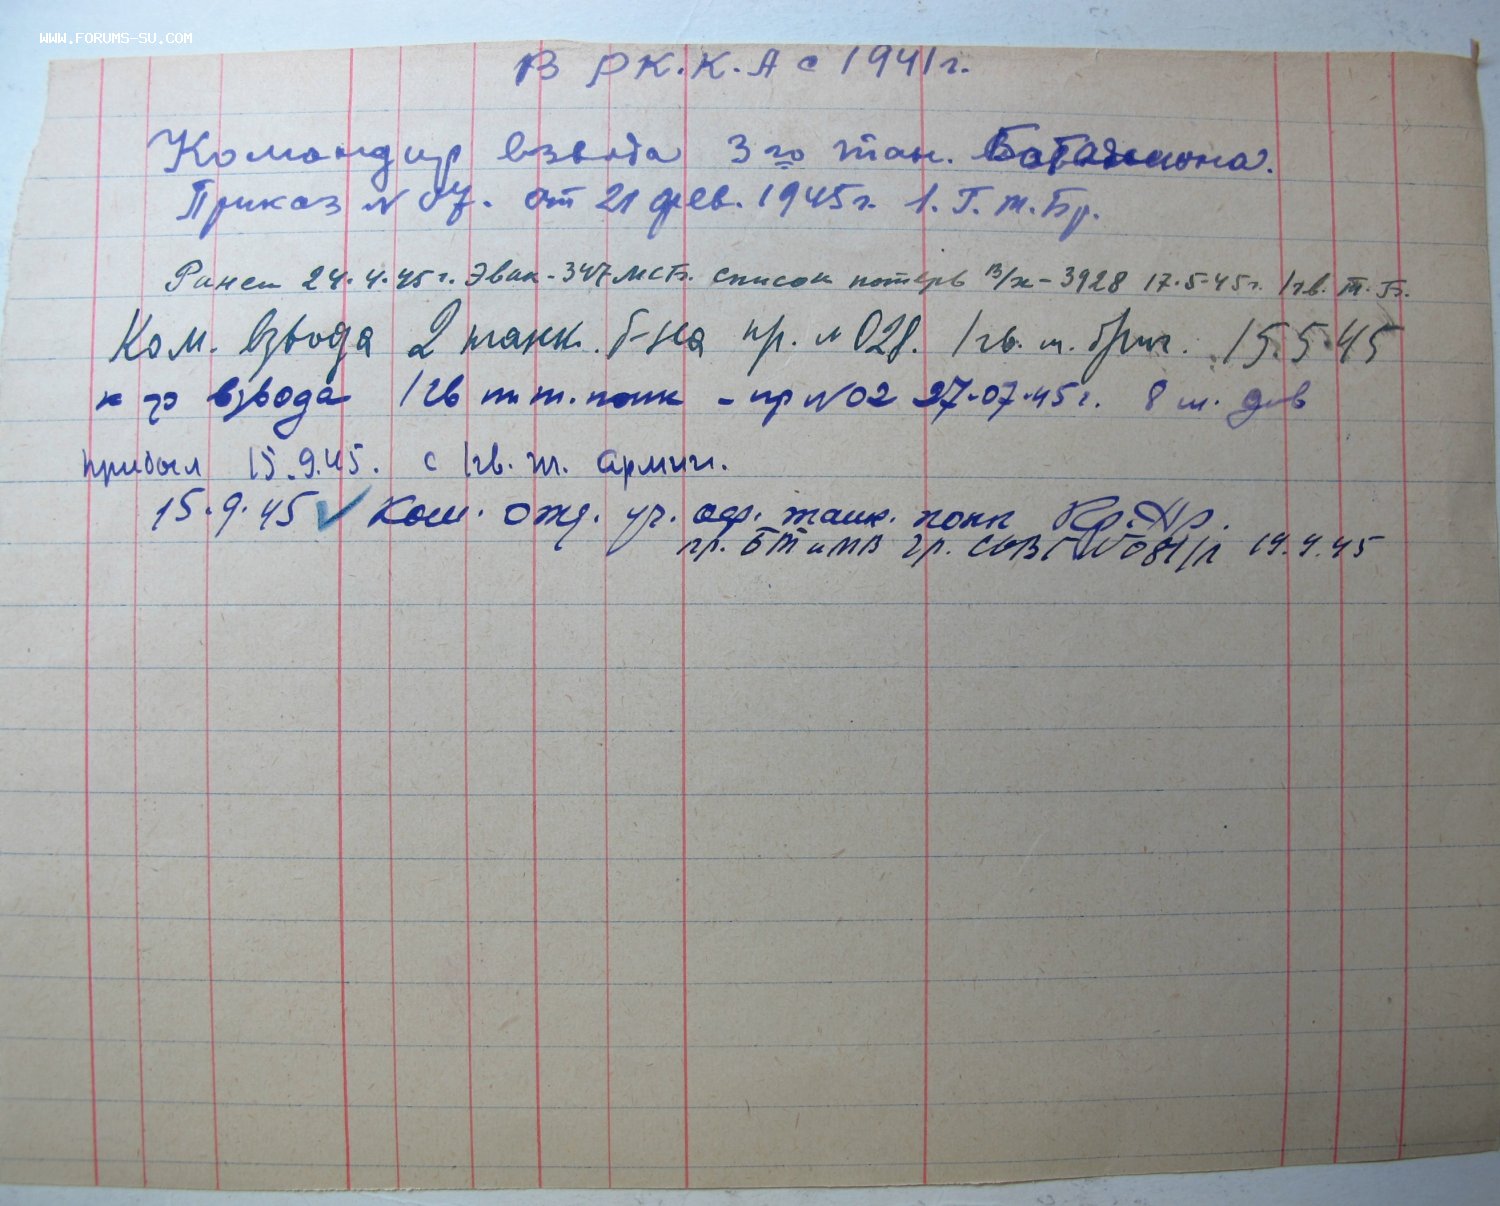 WWW.FORUMS-SU.COM
В РК.К.А с 1941 г.
Командир взвода 3го тан. Батальона.
Приказ № 07. от 21 фев. 1945 г. 1. Г. т. Бр.
Ранен 24.4.45 г. Эвак - 347 МСБ. список потерь в/х - 3928 17.5.45 г. 1 гв. Т. Б.
Ком. взвода 2 танк. б-на пр. № 028. 1 гв. т. бриг. 15.5.45
к-р взвода 1 гв т.т. полк - пр № 02 27.07.45 г. 8 т. див
прибыл 15.9.45. с 1 гв. т. армии.
15.9.45 ✓ Ком. отд. уч. оф. танк. полк
пр. БТ и МВ гр. 19.9.45